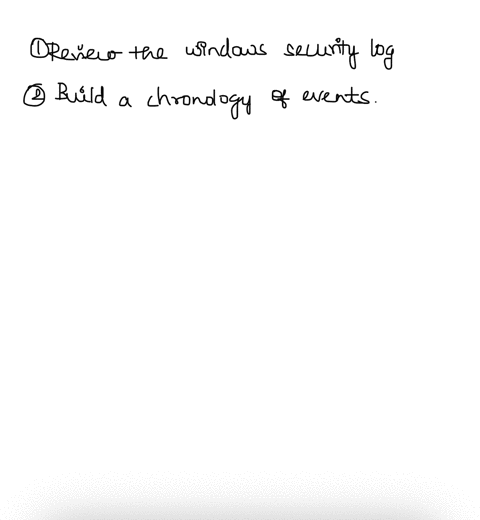 ① Review the windows security log
② Build a chronology of events.